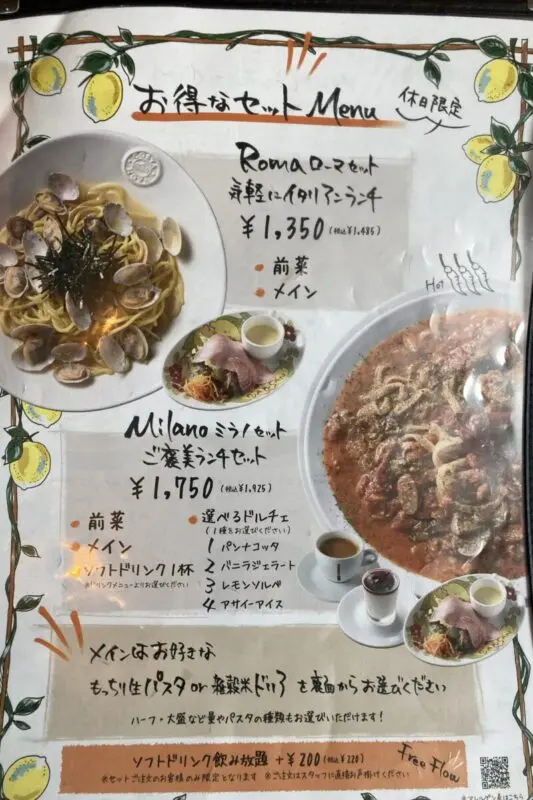 お得なセット Menu
休日限定
Roma ローマセット
気軽にイタリアンランチ
¥1,350 (税込¥1,485)
• 前菜
• メイン
Hot
Milano ミラノセット
ご褒美ランチセット
¥1,750 (税込¥1,925)
• 前菜
• メイン
• ソフトドリンク1杯
※ドリンクメニューよりお選びください
• 選べるドルチェ
(1種をお選びください)
1 パンナコッタ
2 バニラジェラート
3 レモンソルベ
4 アサイーアイス
メインはお好きな
もっちり生パスタ or 雑穀米ドリア を裏面からお選びください
ハーフ・大盛など量やパスタの種類もお選びいただけます!
ソフトドリンク飲み放題 +¥200 (税込¥220)
※セットご注文のお客様のみ限定となります ※ご注文はスタッフに直接お声掛けください
Free Flow
※アレルゲン表はこちら